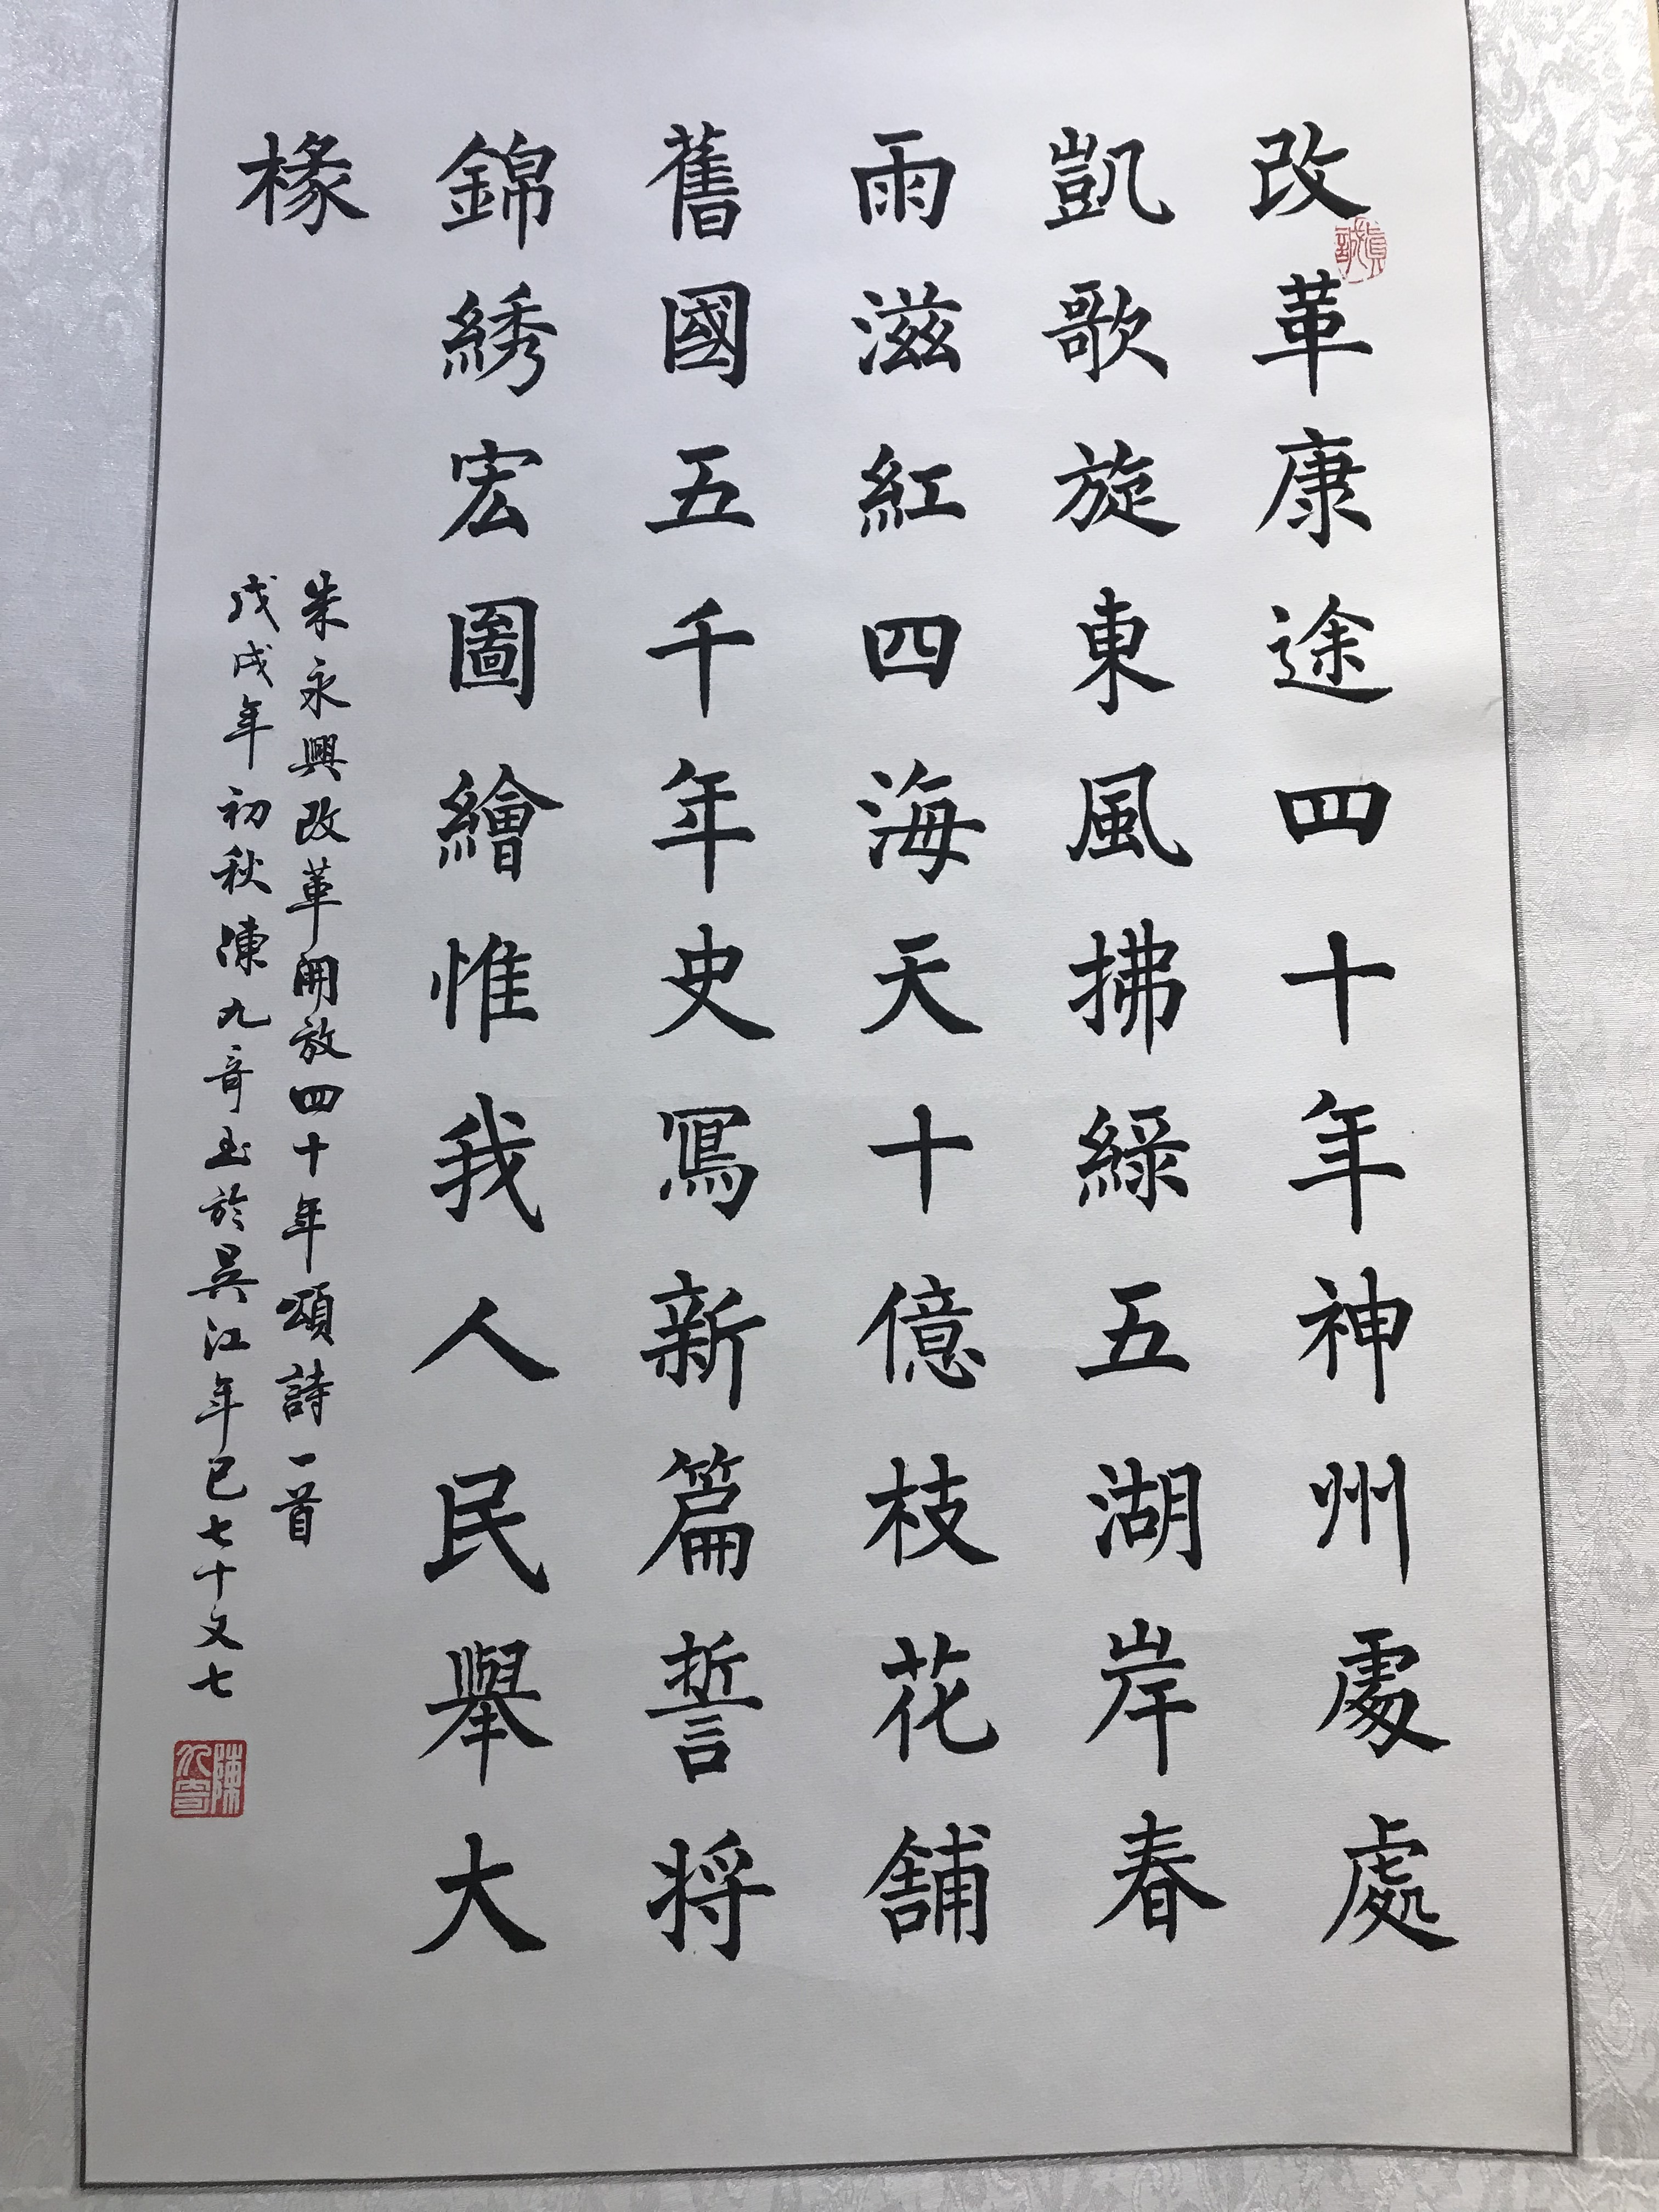 改革康途四十年神州處處
凱歌旋東風拂綠五湖岸春
雨滋紅四海天十億枝花舖
舊國五千年史寫新篇誓将
錦綉宏圖繪惟我人民舉大
椽
朱永興改革開放四十年頌詩一首
戊戌年初秋陳九奇书於吴江年已七十又七